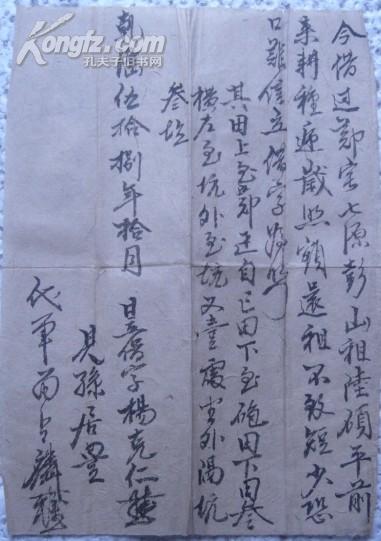 Kongfz.com
孔夫子旧书网
今借过郑宅七源彭山租陆硕平前
来耕种逐歲照額還租不敢短少恐
口難信立借字為照
其田上至郑还自己田下至砲田下田叁
横左至坑外至坑又壹處 外隔坑
叁坵
乾隆伍拾捌年拾月 日立借字楊克仁
見孫居豊
代筆